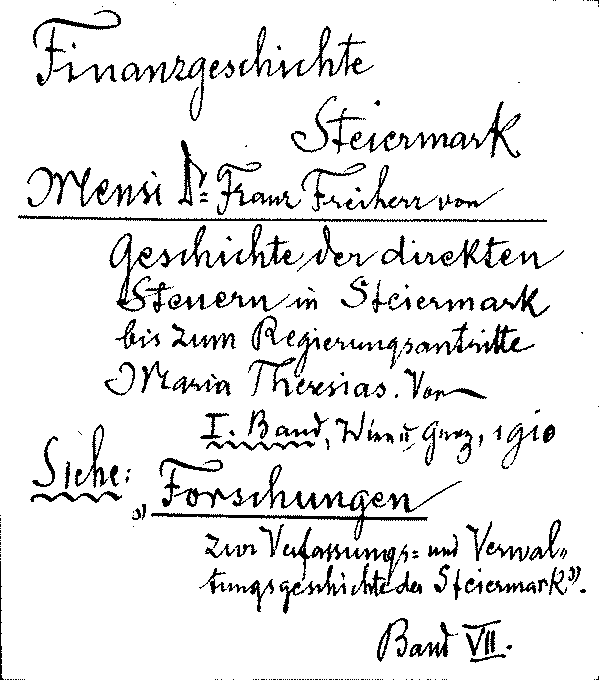 Finanzgeschichte
Steiermark
Mensi Dr. Franz Freiherr von
Geschichte der direkten
Steuern in Steiermark
bis zum Regierungsantritte
Maria Theresias. Von
I. Band, Wien u. Graz, 1910
Siehe:
"Forschungen
zur Verfassungs= und Verwal„
tungsgeschichte der Steiermark".
Band VII.